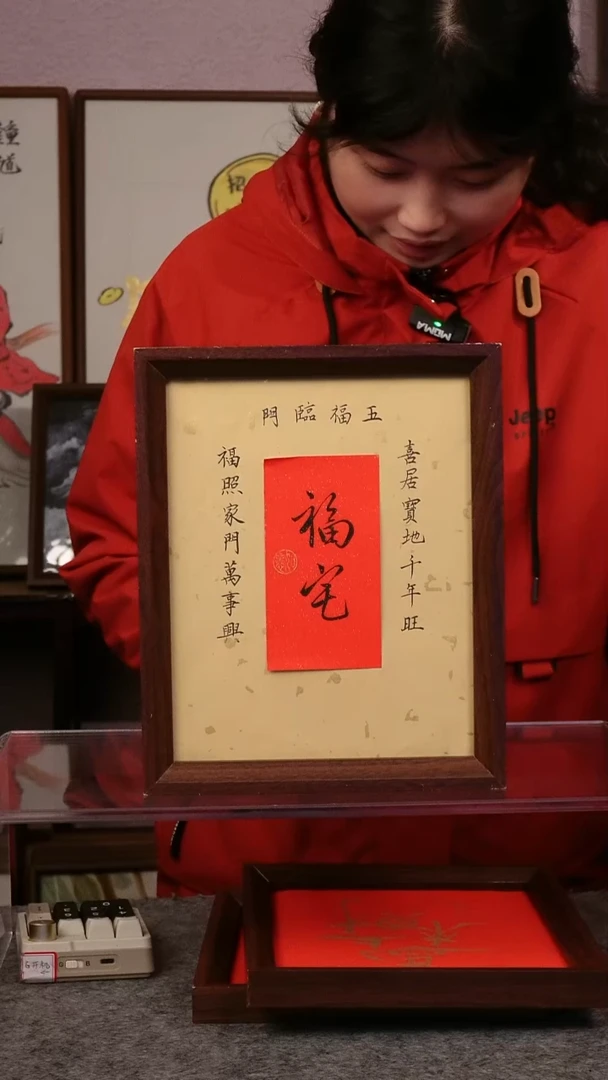 五福臨門
喜居寶地千年旺
福照家門萬事興
福宅
招
道
MOMA
Jeep